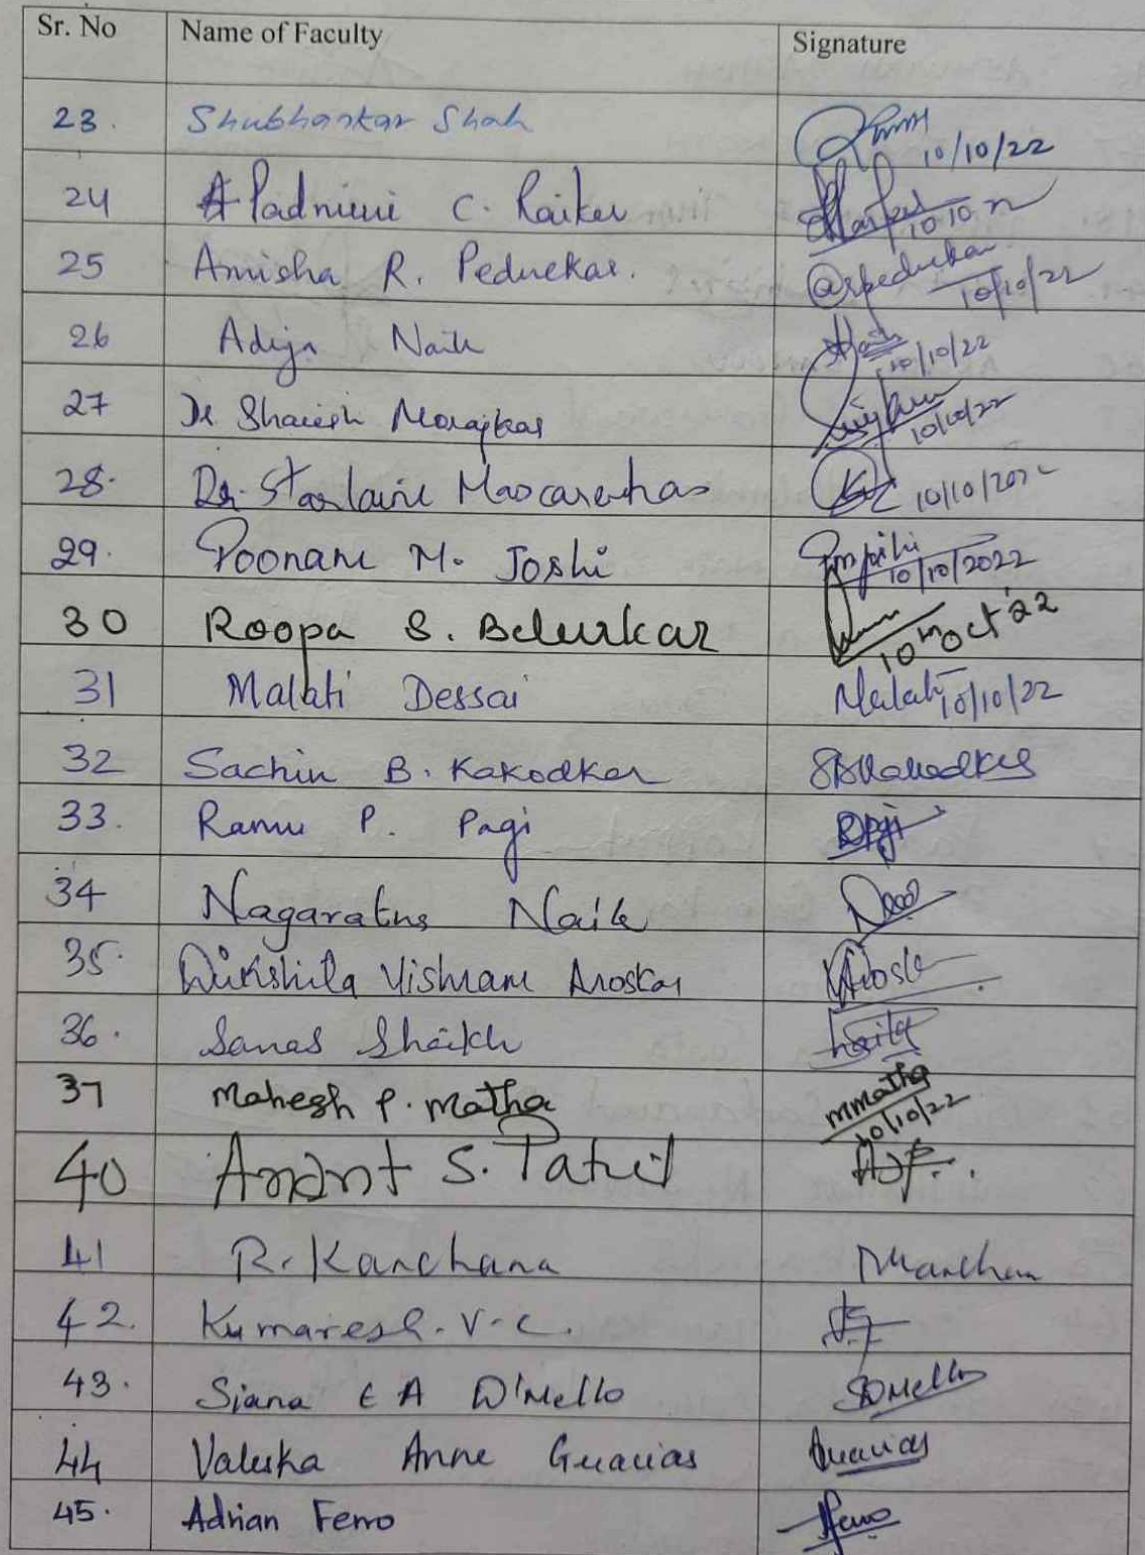 Sr. No Name of Faculty Signature
23. Shubhankar Shah 10/10/22
24 Padmini C. Raiker 10 10
25 Amisha R. Pednekar. @arpednekar 10/10/22
26 Naik 10/10/22
27 Dr Shailesh Morajkar 10/10/22
28. Dr. Starlaine Mascarenhas 10/10/202
29. Poonam M. Joshi 10/10/2022
30 Roopa S. Belurkar 10th Oct '22
31 Malati Dessai Malati 10/10/22
32 Sachin B. Kakodkar SBKakodkar
33. Ramu P. Pagi
34 Nagaratna Naik
35. Vishram Aroskar
36. Sanas Shaikh
37 Mahesh P. Matha mmatha 10/10/22
40 Anant S. Patil
41 R. Kanchana
42. Kumaresh. V. C.
43. Siana E A D'Mello SDMello
44 Valeska Anne
45. Adrian Ferro Ferro